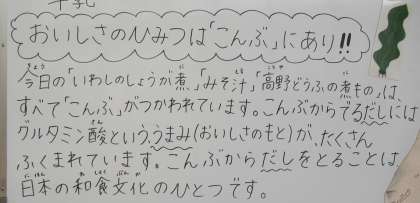 牛乳
おいしさのひみつは「こんぶ」にあり!!
今日の「いわしのしょうが煮」「みそ汁」「高野どうふの煮もの」は、
すべて「こんぶ」がつかわれています。こんぶからでるだしには
グルタミン酸という、うまみ(おいしさのもと)が、たくさん
ふくまれています。こんぶからだしをとることは、
日本の和食文化のひとつです。